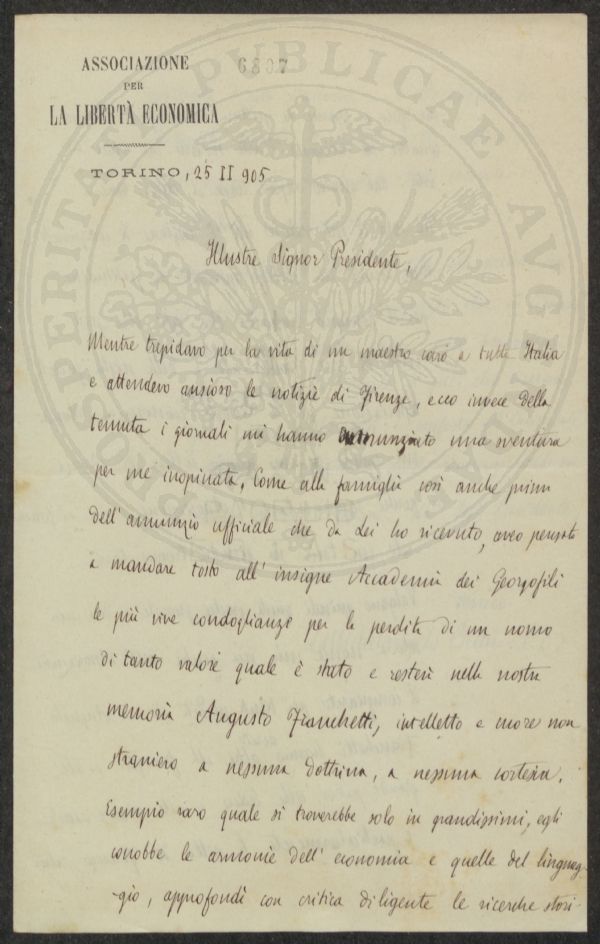 ASSOCIAZIONE
PER
LA LIBERTÀ ECONOMICA
6807
TORINO, 25 II 905
Illustre Signor Presidente,
Mentre trepidavo per la vita di un maestro caro a tutta Italia
e attendevo ansioso le notizie di Firenze, ecco invece della
temuta i giornali mi hanno annunziato una sventura
per me inopinata. Come alla famiglia così anche prima
dell'annunzio ufficiale che da Lei ho ricevuto, avevo pensato
a mandare tosto all'insigne Accademia dei Georgofili
le più vive condoglianze per la perdita di un uomo
di tanto valore quale è stato e resterà nella nostra
memoria Augusto Franchetti, intelletto e cuore non
straniero a nessuna dottrina, a nessuna cortesia.
Esempio raro quale si troverebbe solo in grandissimi, egli
conobbe le armonie dell'economia e quelle del linguag-
-gio, approfondì con critica diligente le ricerche stori-
PROSPERITATI PUBLICAE AUGENDAE